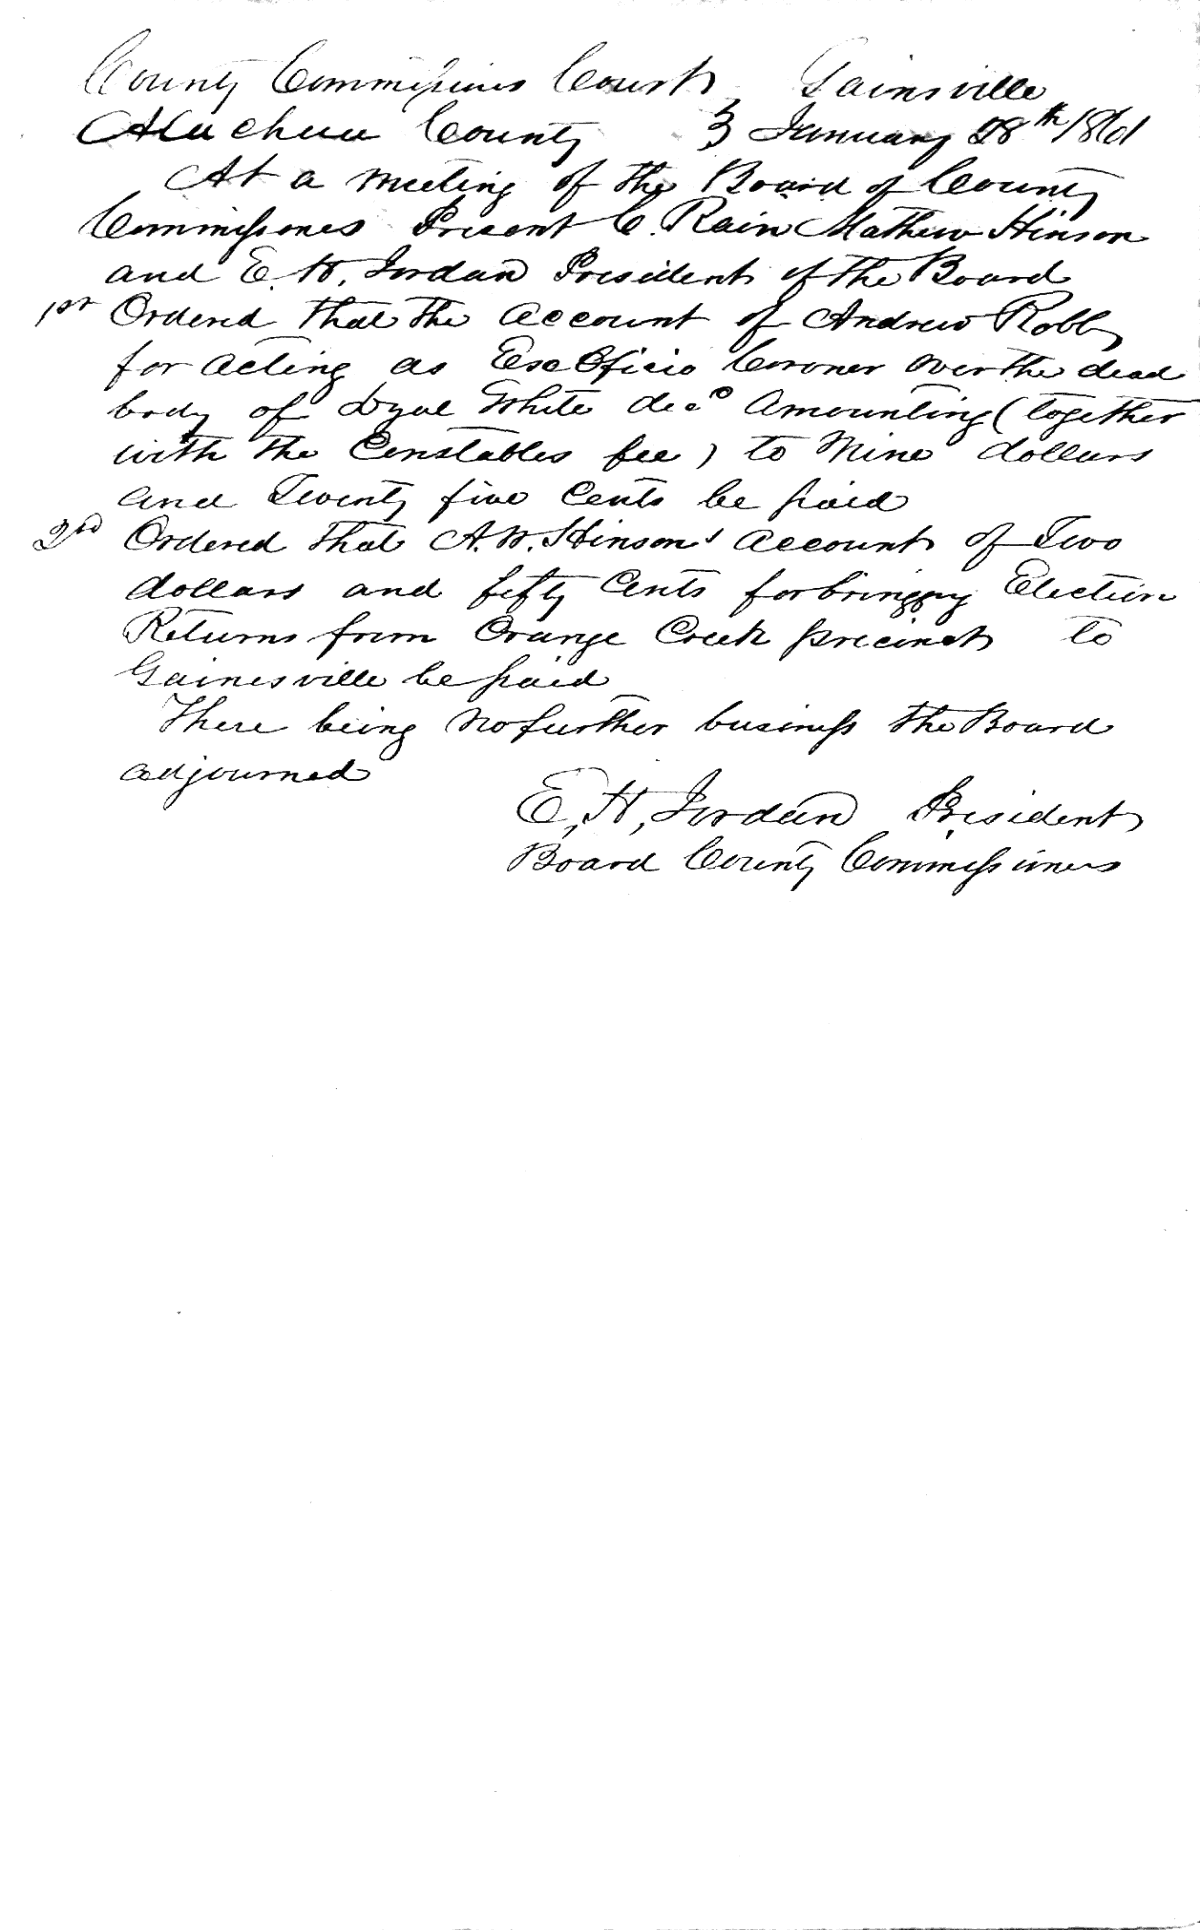 County Commissioners Court Gainsville
Alachua County } January 28th 1861
At a meeting of the Board of County
Commissiones Present C. Rain Mathew Hinson
and E. H. Jordan President of the Board
1st Ordered that the account of Andrew Robb
for acting as Exe Oficio Coroner over the dead
body of Dyal White decd amounting (together
with the Constables fee) to Nine dollars
and Twenty five Cents be paid
2nd Ordered that A. W. Hinson's account of Two
dollars and fifty Cents for bringing Election
Returns from Orange Creek precinct to
Gainesville be paid
There being no further business the Board
adjourned
E, H, Jordan President
Board County Commissioners